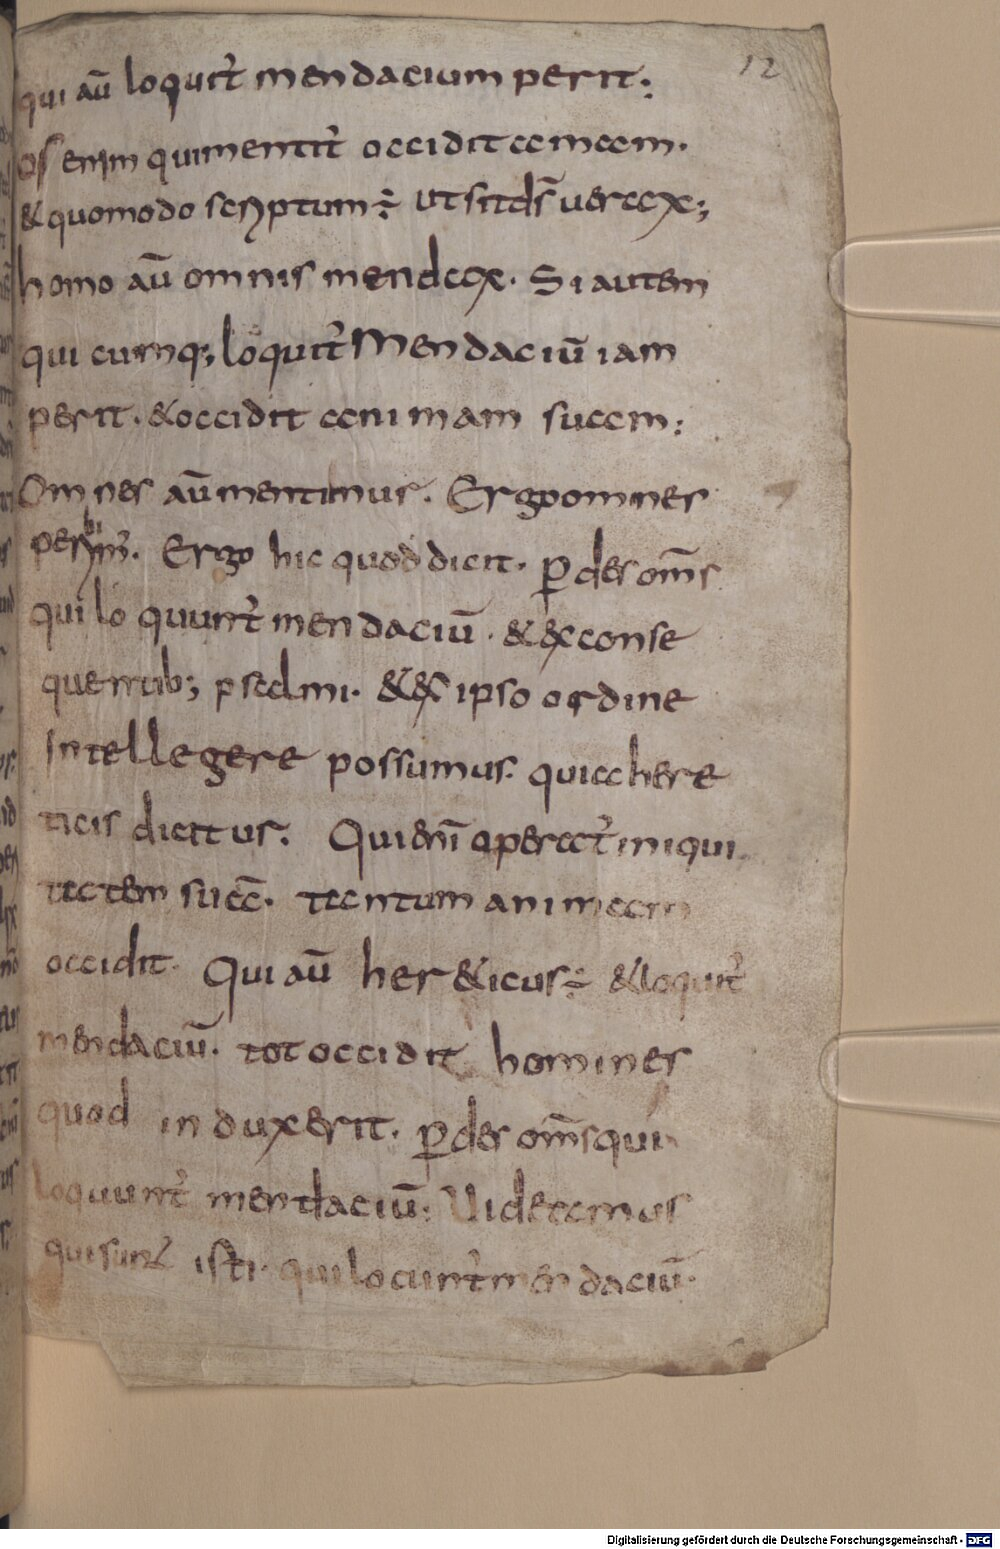 12
qui aū loquit̄ mendacium perit;
os enim qui mentit̄ occidit animam.
& quomodo scriptum ÷ ut sit d̄s uerax;
homo aū omnis mendax. Si autem
quicumq; loquit̄ mendaciū iam
perit. & occidit animam suam:
Omnes aū mentimur. Ergo omnes
peribim̄. Ergo hic quod dicit. ꝑdes om̄s
qui loquunt̄ mendaciū. & ex conse
quentib; psalmi. & ex ipso ordine
intellegere possumus. quia here
ticis dictus. Qui eni̅ operat̄ iniqui
tatem suā. tantum animam
occidit. Qui aū her&icus ÷ & loquit̄
mendaciū. tot occidit homines
quod induxerit. ꝑdes om̄s qui
loquunt̄ mendaciū: Uideamus
qui sunt isti. qui locunt̄ mendaciū.
Digitalisierung gefördert durch die Deutsche Forschungsgemeinschaft - DFG